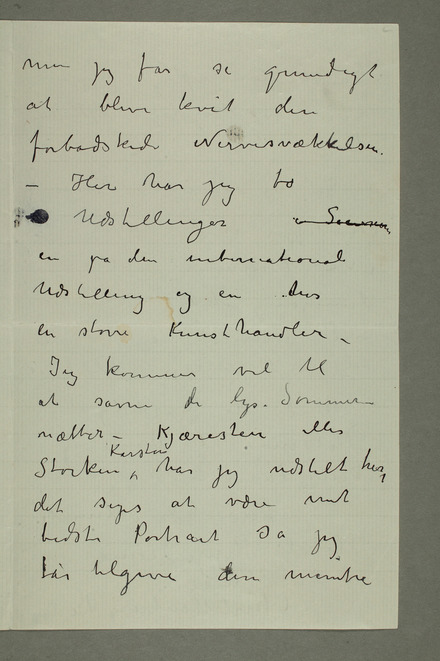 men jeg får se grundigt
at blive kvit den
forbadskede Nervesvækkelsen.
– Her har jeg to
Udstillinger
en på den international
Udstilling og en hos
en störe Kunsthandler –
Jeg kommer vel til
at savne de lyse Sommer
nætter – Kjæresten eller
Storken Karsten, har jeg udstilt her,
det siges at være mit
bedste Portræt så jeg
får tilgive den mindre